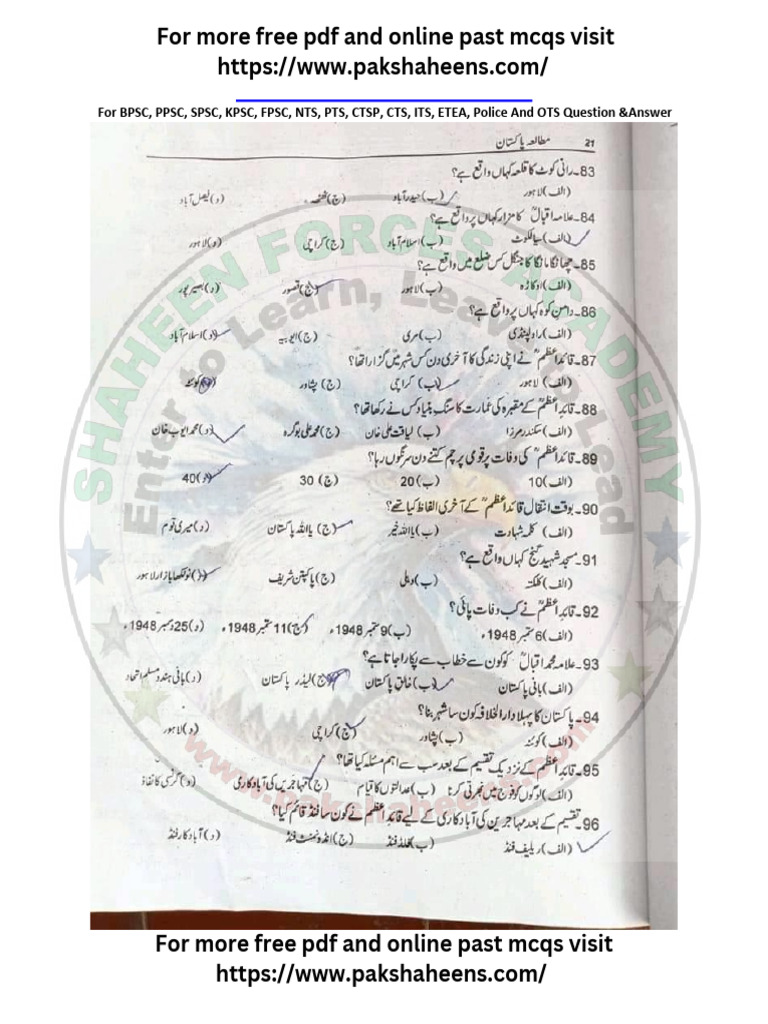 For more free pdf and online past mcqs visit
https://www.pakshaheens.com/
For BPSC, PPSC, SPSC, KPSC, FPSC, NTS, PTS, CTSP, CTS, ITS, ETEA, Police And OTS Question &Answer
21 مطالعہ پاکستان
83۔رانی کوٹ کا قلعہ کہاں واقع ہے؟
(الف)لاہور (ب)حیدرآباد (ج)ٹھٹھہ (د)فیصل آباد
84۔علامہ اقبالؒ کا مزار کہاں پر واقع ہے؟
(الف)سیالکوٹ (ب)اسلام آباد (ج)کراچی (د)لاہور
85۔چھانگا مانگا کا جنگل کس ضلع میں واقع ہے؟
(الف)اوکاڑہ (ب)لاہور (ج)قصور (د)بصیرپور
86۔دامن کوہ کہاں پر واقع ہے؟
(الف)راولپنڈی (ب)مری (ج)ایوبیہ (د)اسلام آباد
87۔قائداعظمؒ نے اپنی زندگی کا آخری دن کس شہر میں گزارا تھا؟
(الف)لاہور (ب)کراچی (ج)پشاور (د)کوئٹہ
88۔قائداعظمؒ کے مقبرہ کی عمارت کا سنگ بنیاد کس نے رکھا تھا؟
(الف)سکندر مرزا (ب)لیاقت علی خان (ج)محمد علی بوگرہ (د)محمد ایوب خان
89۔قائداعظمؒ کی وفات پر قومی پرچم کتنے دن سرنگوں رہا؟
(الف)10 (ب)20 (ج)30 (د)40
90۔بوقت انتقال قائداعظمؒ کے آخری الفاظ کیا تھے؟
(الف)کلمہ شہادت (ب)یااللہ خیر (ج)یااللہ پاکستان (د)میری قوم
91۔مسجد شہید گنج کہاں واقع ہے؟
(الف)کلکتہ (ب)دہلی (ج)پاکپتن شریف (د)نولکھا بازار لاہور
92۔قائداعظمؒ نے کب وفات پائی؟
(الف)6 ستمبر 1948ء (ب)9 ستمبر 1948ء (ج)11 ستمبر 1948ء (د)25 دسمبر 1948ء
93۔علامہ محمد اقبالؒ کو کون سے خطاب سے پکارا جاتا ہے؟
(الف)بانی پاکستان (ب)خالق پاکستان (ج)لیڈر پاکستان (د)بانی ہندو مسلم اتحاد
94۔پاکستان کا پہلا دارالخلافہ کون سا شہر بنا؟
(الف)کوئٹہ (ب)پشاور (ج)کراچی (د)لاہور
95۔قائداعظمؒ کے نزدیک تقسیم کے بعد سب سے اہم مسئلہ کیا تھا؟
(الف)لوگوں کو فوج میں بھرتی کرنا (ب)عدالتوں کا قیام (ج)مہاجرین کی آبادکاری (د)کرنسی کا نفاذ
96۔تقسیم کے بعد مہاجرین کی آبادکاری کے لیے قائداعظمؒ نے کون سا فنڈ قائم کیا؟
(الف)ریلیف فنڈ (ب)فلڈ فنڈ (ج)انڈومنٹ فنڈ (د)آبادکار فنڈ
SHAHEEN FORCES ACADEMY
Enter to Learn, Leave to Lead
www.pakshaheens.com
For more free pdf and online past mcqs visit
https://www.pakshaheens.com/